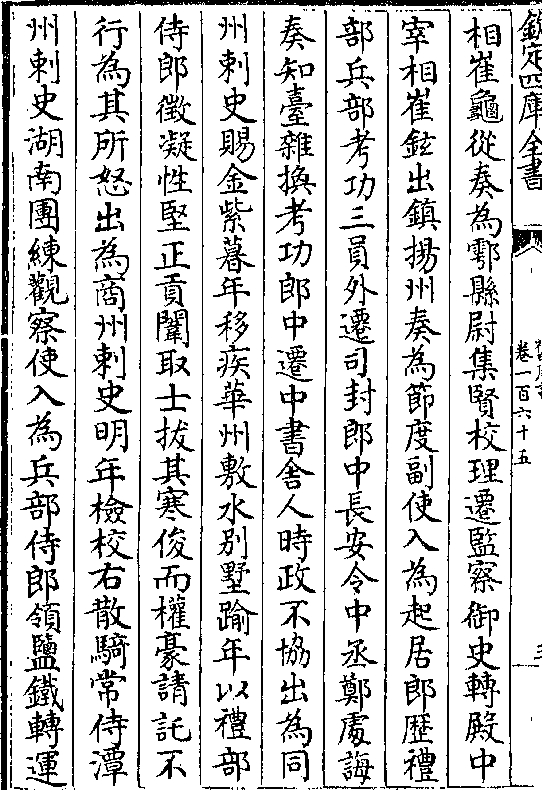 欽定四庫全書
卷一百六十五
相崔龜從奏為鄠縣尉集賢校理遷監察御史轉殿中
宰相崔鉉出鎮揚州奏為節度副使入為起居郎歷禮
部兵部考功三員外遷司封郎中長安令中丞鄭處誨
奏知臺雜換考功郎中遷中書舍人時政不協出為同
州刺史賜金紫暮年移疾華州敷水别墅踰年以禮部
侍郎徵凝性堅正貢闈取士拔其寒俊而權豪請託不
行為其所怒出為商州刺史明年檢校右散騎常侍潭
州刺史湖南團練觀察使入為兵部侍郎領鹽鐵轉運